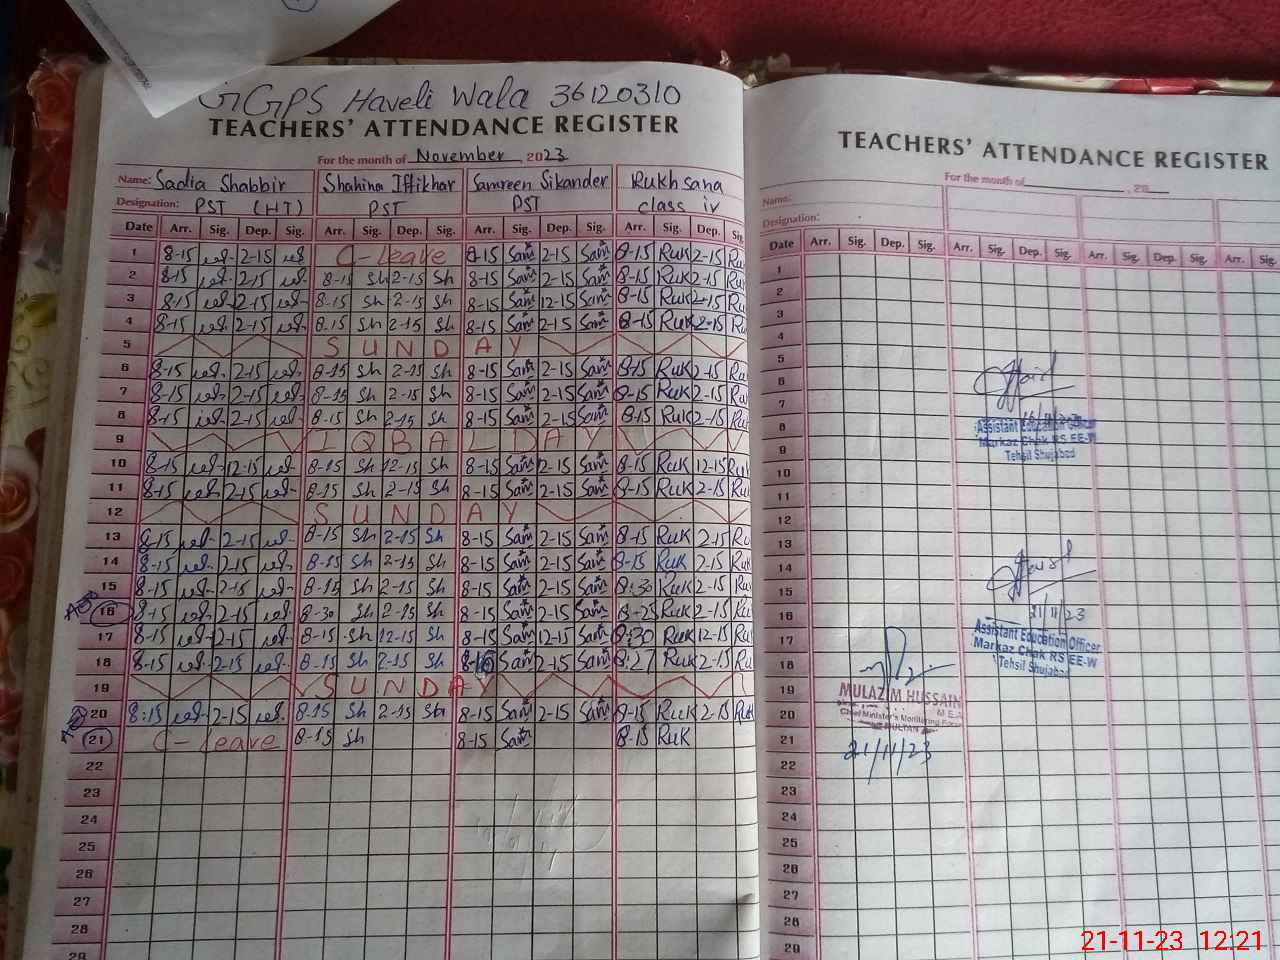 GGPS Haveli Wala 36120310
TEACHERS' ATTENDANCE REGISTER
For the month of November, 2023
Name: Sadia Shabbir Shahina Iftikhar Samreen Sikander Rukhsana
Designation: PST (HT) PST PST class iv
Date Arr. Sig. Dep. Sig. Arr. Sig. Dep. Sig. Arr. Sig. Dep. Sig. Arr. Sig. Dep. Sig.
1 8-15 2-15 C-leave 8-15 Sam 2-15 Sam 8-15 Ruk 2-15 Ru
2 8-15 2-15 8-15 Sh 2-15 Sh 8-15 Sam 2-15 Sam 8-15 Ruk 2-15 Ru
3 8-15 2-15 8-15 Sh 2-15 Sh 8-15 Sam 12-15 Sam 8-15 Ruk 2-15 Ru
4 8-15 2-15 8-15 Sh 2-15 Sh 8-15 Sam 2-15 Sam 8-15 Ruk 2-15 Ru
5 SUNDAY
6 8-15 2-15 8-15 Sh 2-15 Sh 8-15 Sam 2-15 Sam 8-15 Ruk 2-15 Ru
7 8-15 2-15 8-15 Sh 2-15 Sh 8-15 Sam 2-15 Sam 8-15 Ruk 2-15 Ru
8 8-15 2-15 8-15 Sh 2-15 Sh 8-15 Sam 2-15 Sam 8-15 Ruk 2-15 Ru
9 IQBAL DAY
10 8-15 12-15 8-15 Sh 12-15 Sh 8-15 Sam 2-15 Sam 8-15 Ruk 12-15 Ru
11 8-15 2-15 8-15 Sh 2-15 Sh 8-15 Sam 2-15 Sam 8-15 Ruk 2-15 Ru
12 SUNDAY
13 8-15 2-15 8-15 Sh 2-15 Sh 8-15 Sam 2-15 Sam 8-15 Ruk 2-15 Ru
14 8-15 2-15 8-15 Sh 2-15 Sh 8-15 Sam 2-15 Sam 8-15 Ruk 2-15 Ru
15 8-15 2-15 8-15 Sh 2-15 Sh 8-15 Sam 2-15 Sam 8-30 Ruk 2-15 Ru
16 8-15 2-15 8-30 Sh 2-15 Sh 8-15 Sam 2-15 Sam 8-25 Ruk 2-15 Ru
17 8-15 12-15 8-15 Sh 12-15 Sh 8-15 Sam 12-15 Sam 8:30 Ruk 12-15 Ru
18 8-15 2-15 8-15 Sh 2-15 Sh Sam 2-15 Sam 8:27 Ruk 2-15 Ru
19 SUNDAY
20 8:15 2-15 8-15 Sh 2-15 Sh 8-15 Sam 2-15 Sam 8-15 Ruk 2-15 Ruk
21 C-leave 8-15 Sh 8-15 Sam 8-15 Ruk
22
23
24
25
26
27
28
29
TEACHERS' ATTENDANCE REGISTER
For the month of , 20
Name:
Designation:
Date Arr. Sig. Dep. Sig. Arr. Sig. Dep. Sig. Arr. Sig. Dep. Sig. Arr. Sig.
1
2
3
4
5
6
7
8
9
10
11
12
13
14
15
16
17
18
19
20
21
22
23
24
25
26
27
28
29
Assistant Education Officer
Markaz Chak RS EE-W
Tehsil Shujabad
21/11/23
Assistant Education Officer
Markaz Chak RS EE-W
Tehsil Shujabad
MULAZIM HUSSAIN
M E A
Chief Minister's Monitoring Force
MULTAN
21/11/23
21-11-23 12:21